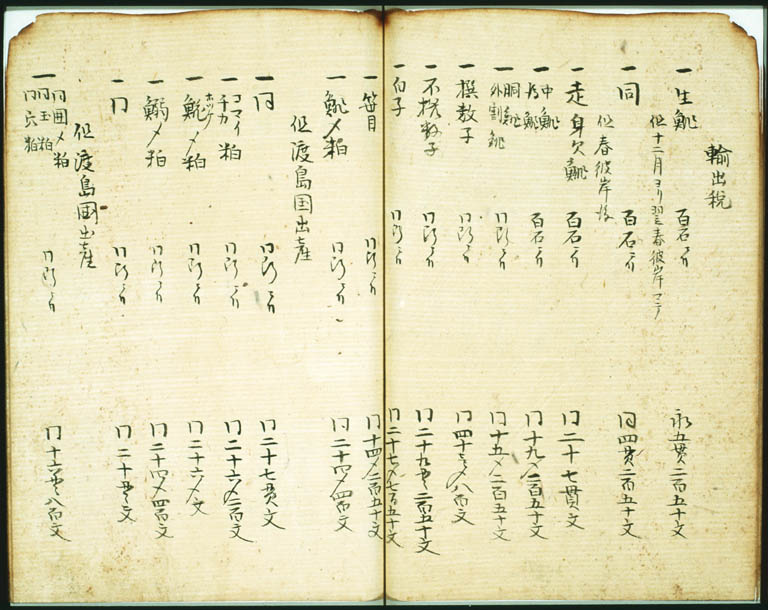 輸出税
一 生鯡 百石ニ付 永五貫二百五十文
但十二月ヨリ翌春彼岸マテ
一 同 百石ニ付 同四貫二百五十文
但春彼岸後
一 走身欠鯡 百石ニ付 同二十七貫文
一 中鯡 百石ニ付 同十九〆二百五十文
胴鯡
外割鯡 同断ニ付 同十五〆二百五十文
一 撰数子 同断ニ付 〆八百文
一 不撰数子 同断ニ付 同二十九貫二百五十文
一 白子 同断ニ付 同二十七〆七百五十文
一 笹目 同断ニ付 同十四〆二百五十文
一 鯡〆粕 同断ニ付 同二十四〆四百文
但渡島国出産
一 同 同断ニ付 同二十七貫文
一 コマイ
チカ 粕 同断ニ付 同二十六〆二百文
一 ホッケ〆粕 同断ニ付 同二十六〆文
一 鰯〆粕 同断ニ付 同二十四〆四百文
一 同 同断ニ付 同二十貫文
但渡島国出産
一 〆粕
同玉粕
同穴粕 同断ニ付 八百文